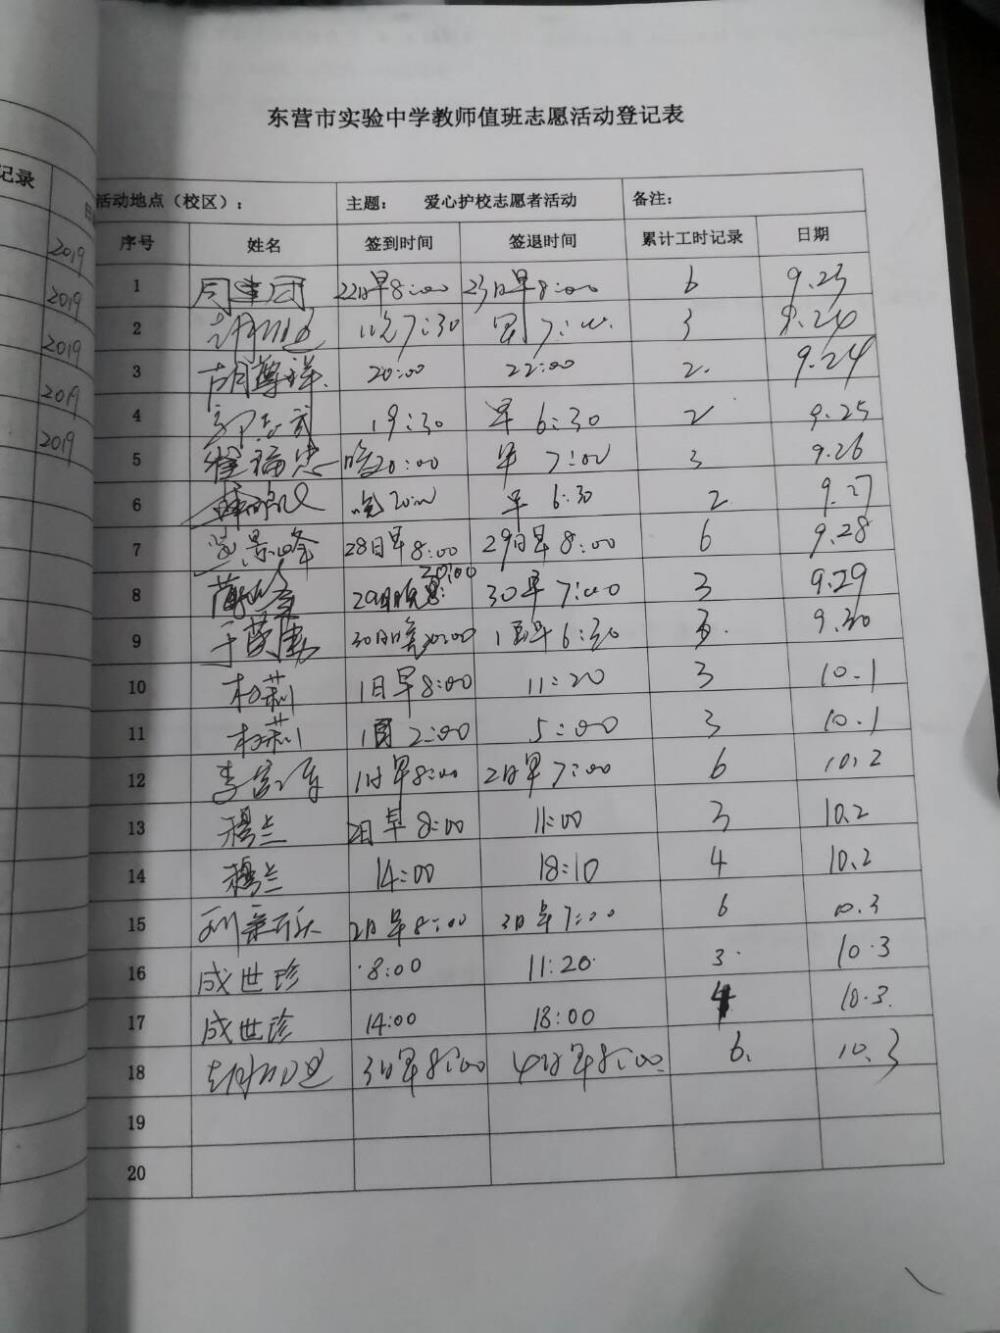 东营市实验中学教师值班志愿活动登记表
记录
日
2019
2019
2019
2019
2019
活动地点（校区）： 主题： 爱心护校志愿者活动 备注：
序号 姓名 签到时间 签退时间 累计工时记录 日期
1 周建国 22日早8:00 23日早8:00 6 9.23
2 晚7:30 7:00 3 9.24
3 胡尊祥 20:00 22:00 2 9.24
4 19:30 早 6:30 2 9.25
5 崔福忠 晚20:00 早 7:00 3 9.26
6 晚20:00 早 6:30 2 9.27
7 景峰 28日早8:00 29日早8:00 6 9.28
8 29日晚 20:00 30早7:00 3 9.29
9 30日晚20:00 1日早6:30 3 9.30
10 杜莉 1日早8:00 11:20 3 10.1
11 杜莉 1日 2:00 5:00 3 10.1
12 李 1日早8:00 2日早7:00 6 10.2
13 穆兰 2日早8:00 11:00 3 10.2
14 穆兰 14:00 18:10 4 10.2
15 2日早8:00 3日早7:00 6 10.3
16 成世珍 8:00 11:20 3 10.3
17 成世珍 14:00 18:00 4 10.3
18 3日早8:00 4日早8:00 6 10.3
19
20